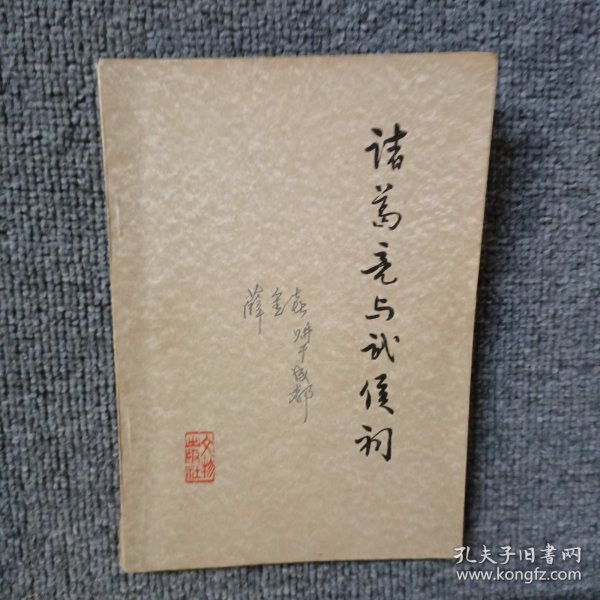 诸葛亮与武侯祠
薛金
购于成都
文物
出版社
孔夫子旧书网
www.kongfz.com